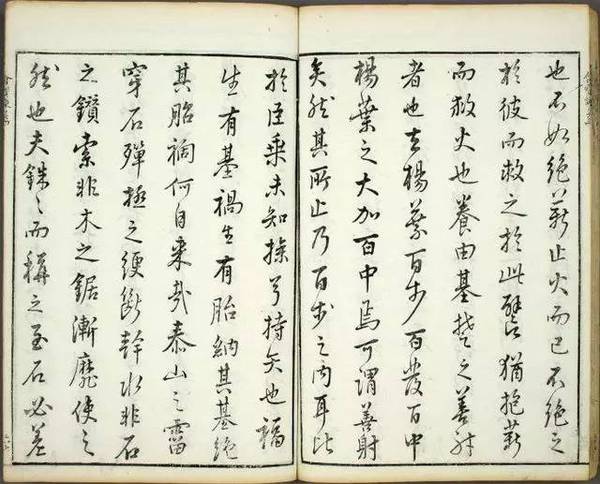 也不如绝薪止火而已不绝之
於彼而救之於此譬犹抱薪
而救火也养由基楚之善射
者也去楊葉百步百发百中
楊葉之大加百中焉可谓善射
矣然其所止乃百步之内耳比
於臣乘未知操弓持矢也福
生有基禍生有胎納其基绝
其胎禍何自来哉泰山之霤
穿石殫極之綆斷幹水非石
之鑽索非木之鋸漸靡使之
然也夫銖之而稱之至石必差